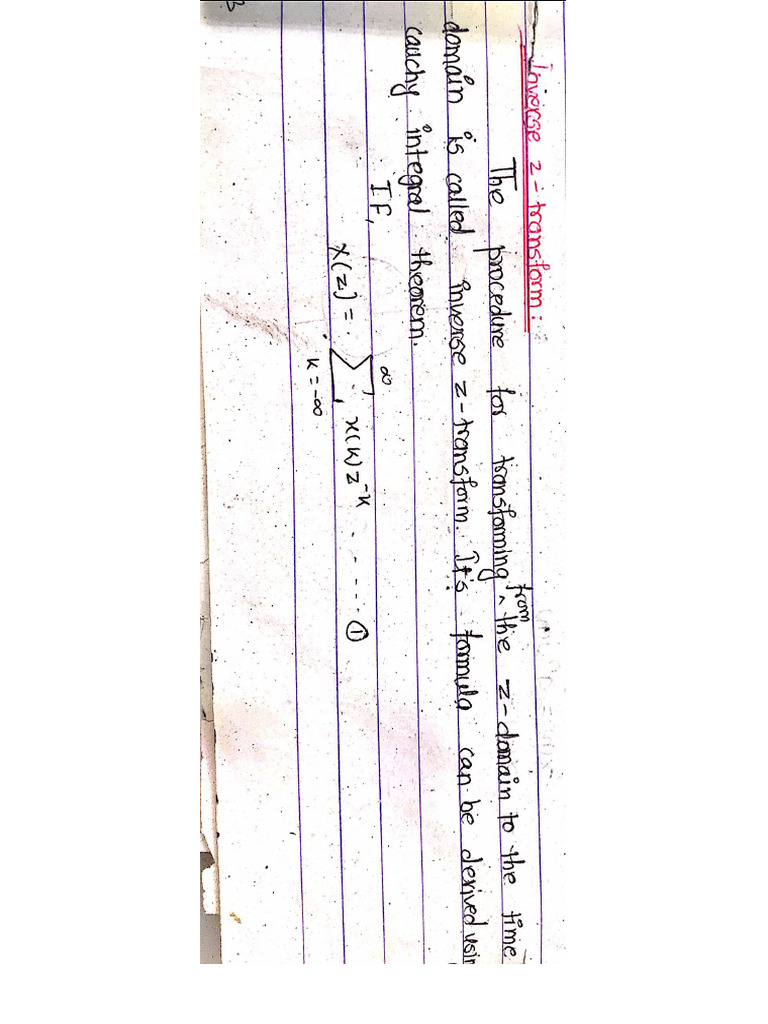 Inverse z-transform:
The procedure for transforming from the z-domain to the time
domain is called inverse z-transform. It's formula can be derived
cauchy integral theorem.
IF,
X(z) = ∑_{k=-∞}^{∞} x(k) z^{-k} ...... ①